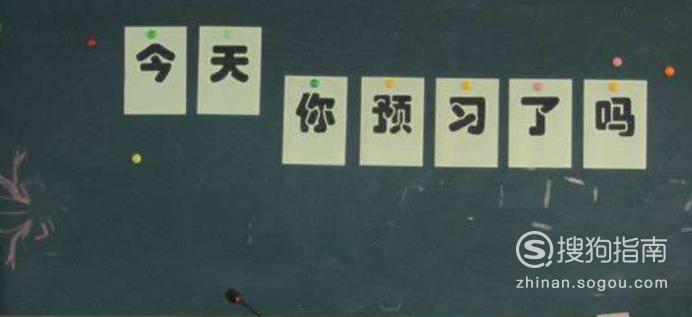 今天
你预习了吗
搜狗指南
zhinan.sogou.com